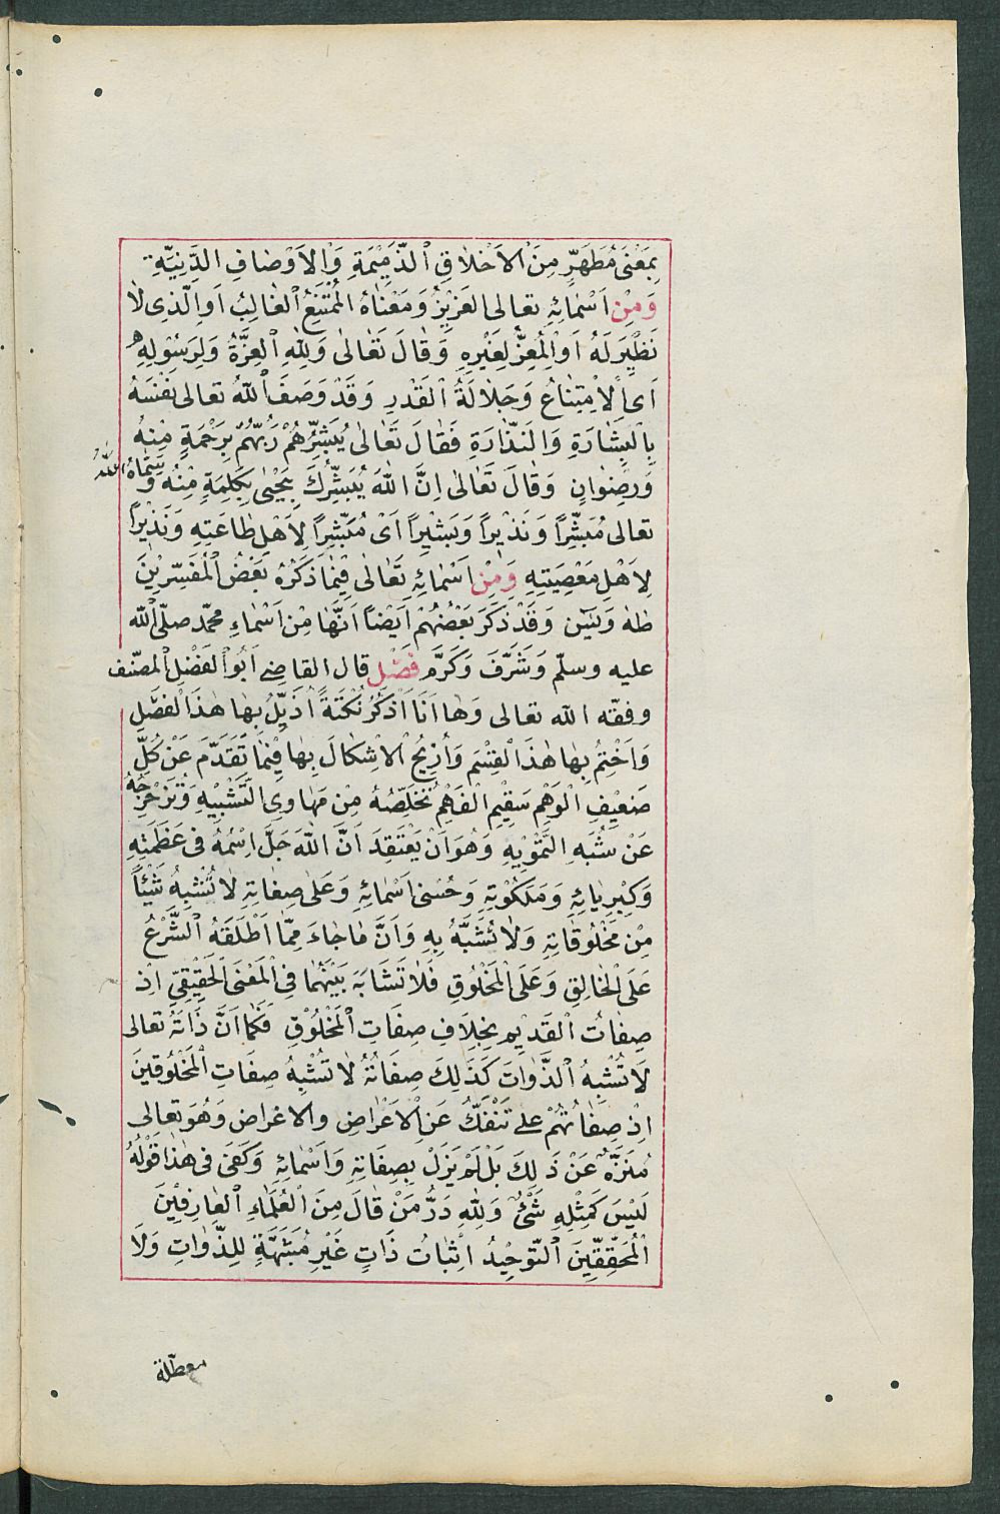 بِمَعْنَى مُطَهِّرٍ مِنَ الْاَخْلَاقِ الذَّمِيْمَةِ وَالْاَوْصَافِ الدَّنِيَّةِ
وَمِنْ اَسْمَائِهِ تعالى العَزِيْزُ وَمَعْنَاهُ الْمُمْتَنِعُ الْغَالِبُ اَوِ الَّذِى لَا
نَظِيْرَ لَهُ اَوِ الْمُعِزُّ لِغَيْرِهِ وَقَالَ تَعَالٰى وَلِلّٰهِ الْعِزَّةُ وَلِرَسُوْلِهِ
اَىِ الْاِمْتِنَاعُ وَجَلَالَةُ الْقَدْرِ وَقَدْ وَصَفَ اللّٰهُ تعالى نَفْسَهُ
بِالْبِشَارَةِ وَالنَّذَارَةِ فَقَالَ تَعَالٰى يُبَشِّرُهُمْ رَبُّهُمْ بِرَحْمَةٍ مِنْهُ
وَرِضْوَانٍ وَقَالَ تَعَالٰى اِنَّ اللّٰهَ يُبَشِّرُكَ بِيَحْيٰى بِكَلِمَةٍ مِنْهُ وَسَمَّاهُ اللّٰهُ
تعالى مُبَشِّرًا وَنَذِيْرًا وَبَشِيْرًا اَىْ مُبَشِّرًا لِاَهْلِ طَاعَتِهِ وَنَذِيْرًا
لِاَهْلِ مَعْصِيَتِهِ وَمِنْ اَسْمَائِهِ تَعَالٰى فِيْمَا ذَكَرَهُ بَعْضُ الْمُفَسِّرِيْنَ
طٰهٰ وَيٰسٓ وَقَدْ ذَكَرَ بَعْضُهُمْ اَيْضًا اَنَّهَا مِنْ اَسْمَاءِ محمّد صلّى اللّٰه
عليه وسلّم وَشَرَّفَ وَكَرَّمَ فَصْل قال القاضى اَبُو الْفَضْلِ المصنّف
وفقه الله تعالى وَهَا اَنَا اَذْكُرُ نُكْتَةً اُذَيِّلُ بِهَا هٰذَا الْفَصْلَ
وَاَخْتِمُ بِهَا هٰذَا الْقِسْمَ وَاُزِيْحُ الْاِشْكَالَ بِهَا فِيْمَا تَقَدَّمَ عَنْ كُلِّ
ضَعِيْفِ الْوَهْمِ سَقِيْمِ الْفَهْمِ تُخَلِّصُهُ مِنْ مَهَاوِى التَّشْبِيْهِ وَتُزَحْزِحُهُ
عَنْ شُبَهِ التَّمْوِيْهِ وَهُوَ اَنْ يَعْتَقِدَ اَنَّ اللّٰهَ جَلَّ اِسْمُهُ فى عَظَمَتِهِ
وَكِبْرِيَائِهِ وَمَلَكُوْتِهِ وَحُسْنٰى اَسْمَائِهِ وَعَلٰى صِفَاتِهِ لَا يُشْبِهُ شَيْئًا
مِنْ مَخْلُوقَاتِهِ وَلَا يُشَبَّهُ بِهِ وَاَنَّ مَا جَاءَ مِمَّا اَطْلَقَهُ الشَّرْعُ
عَلَى الْخَالِقِ وَعَلَى الْمَخْلُوقِ فَلَا تَشَابُهَ بَيْنَهُمَا فِى الْمَعْنَى الْحَقِيْقِىِّ اِذْ
صِفَاتُ الْقَدِيْمِ بِخِلَافِ صِفَاتِ الْمَخْلُوْقِ فَكَمَا اَنَّ ذَاتَهُ تعالى
لَا تُشْبِهُ الذَّوَاتَ كَذٰلِكَ صِفَاتُهُ لَا تُشْبِهُ صِفَاتِ الْمَخْلُوقِينَ
اِذْ صِفَاتُهُمْ على تَنْفَكُّ عَنِ الْاَعْرَاضِ والاغراض وَهُوَ تعالى
مُنَزَّهٌ عَنْ ذٰلِكَ بَلْ لَمْ يَزَلْ بِصِفَاتِهِ وَاَسْمَائِهِ وَكَفَى فى هٰذَا قَوْلُهُ
لَيْسَ كَمِثْلِهِ شَىْءٌ وَلِلّٰهِ دَرُّ مَنْ قَالَ مِنَ الْعُلَمَاءِ الْعَارِفِيْنَ
الْمُحَقِّقِيْنَ التَّوْحِيْدُ اِثْبَاتُ ذَاتٍ غَيْرِ مُشَبَّهَةٍ لِلذَّوَاتِ وَلَا
معطّلة